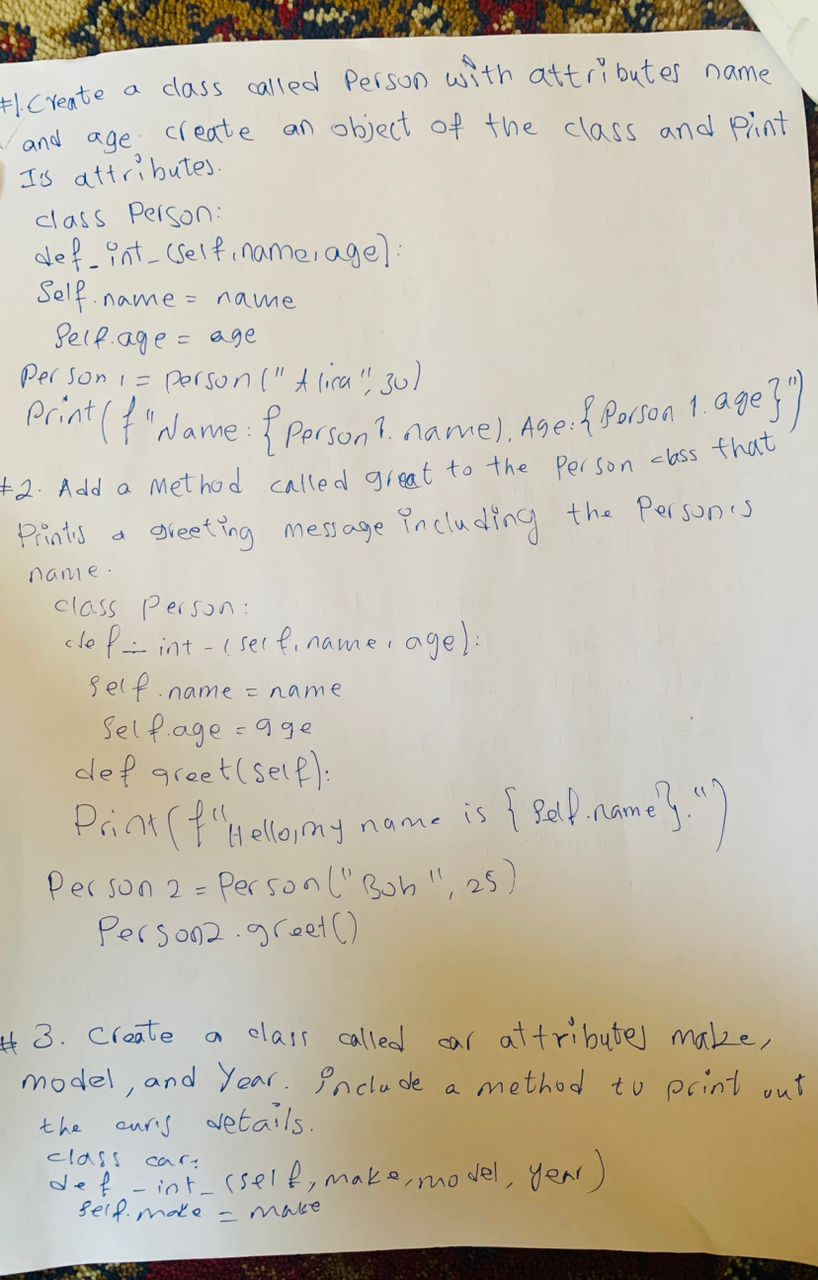 #1. Create a class called Person with attributes name
and age. create an object of the class and Print
Its attributes.
class Person:
def_int_(self,name,age):
Self.name = name
Self.age = age
Person 1 = person("Alica", 30)
Print(f"Name: {Person1.name}, Age:{Person 1.age}")
#2. Add a Method called great to the Person class that
Prints a greeting message including the Person's
name.
class Person:
def _ int _ (self, name, age):
self.name = name
Self.age = age
def greet(self):
Print(f"Hello,my name is {Self.name}.")
Person 2 = Person("Bob", 25)
Person2.greet()
# 3. Create a class called car attributes make,
model, and Year. include a method to print out
the car's details.
class car:
def _int_ (self, make, model, year)
self.make = make